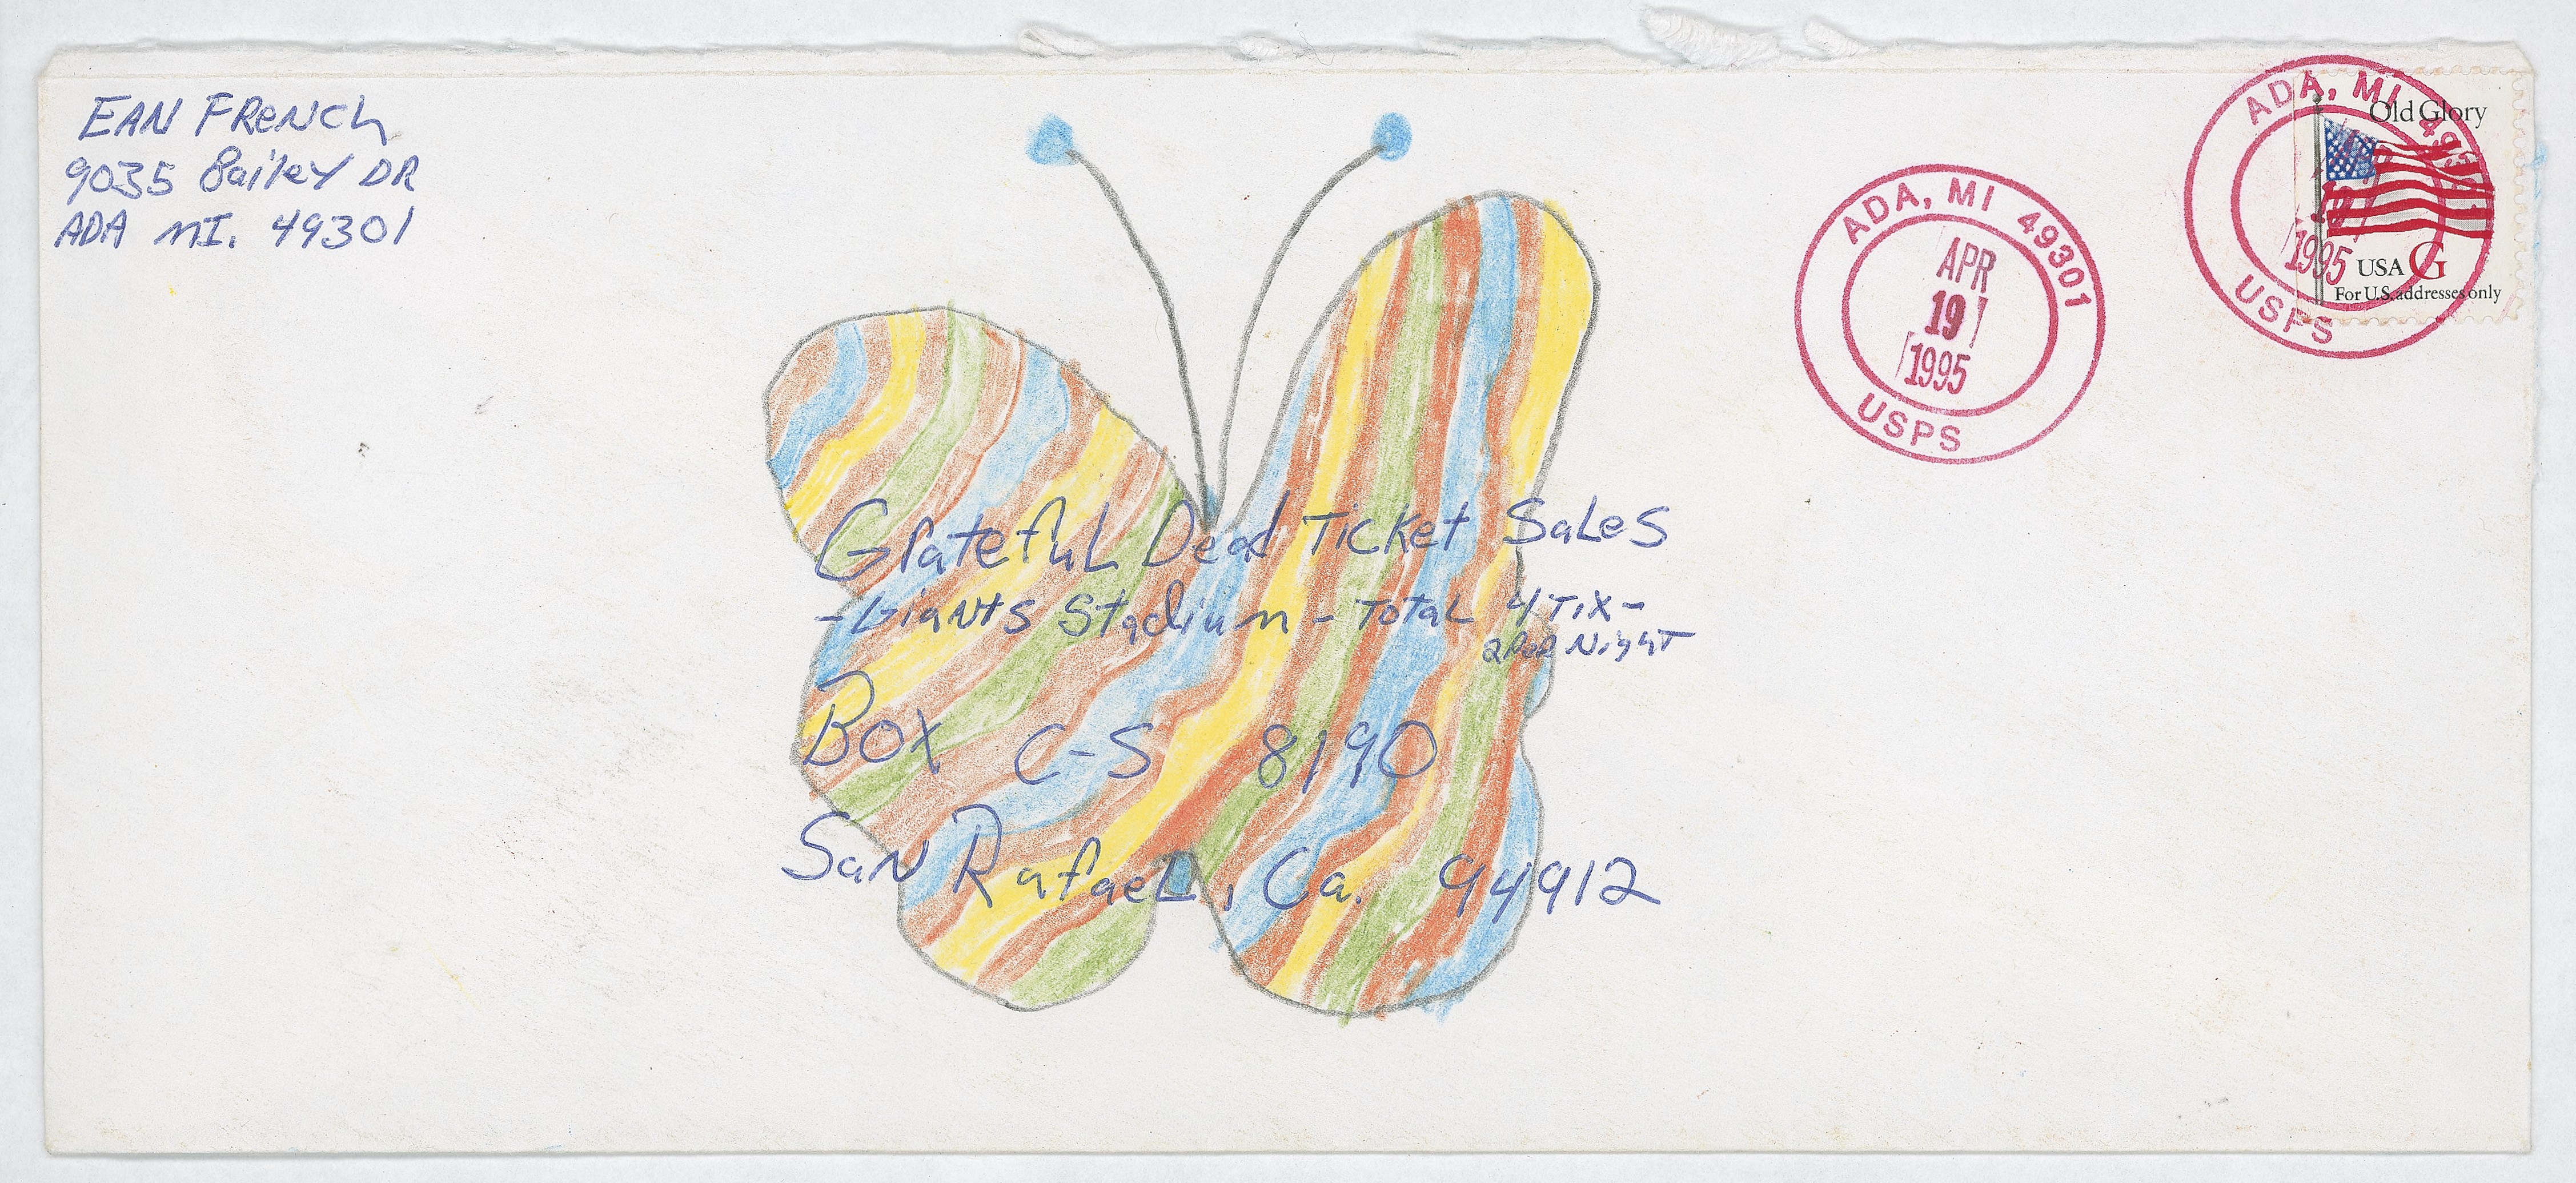 EAN FRENCH
9035 Bailey DR
ADA MI. 49301
ADA, MI 49301
APR
19
1995
USPS
ADA, MI 49301
19
1995
USPS
Old Glory
USA G
For U.S. addresses only
Grateful Dead Ticket Sales
-Giants Stadium - Total 4 TIX-
2 Per Night
Box C-S 8190
San Rafael, Ca. 94912